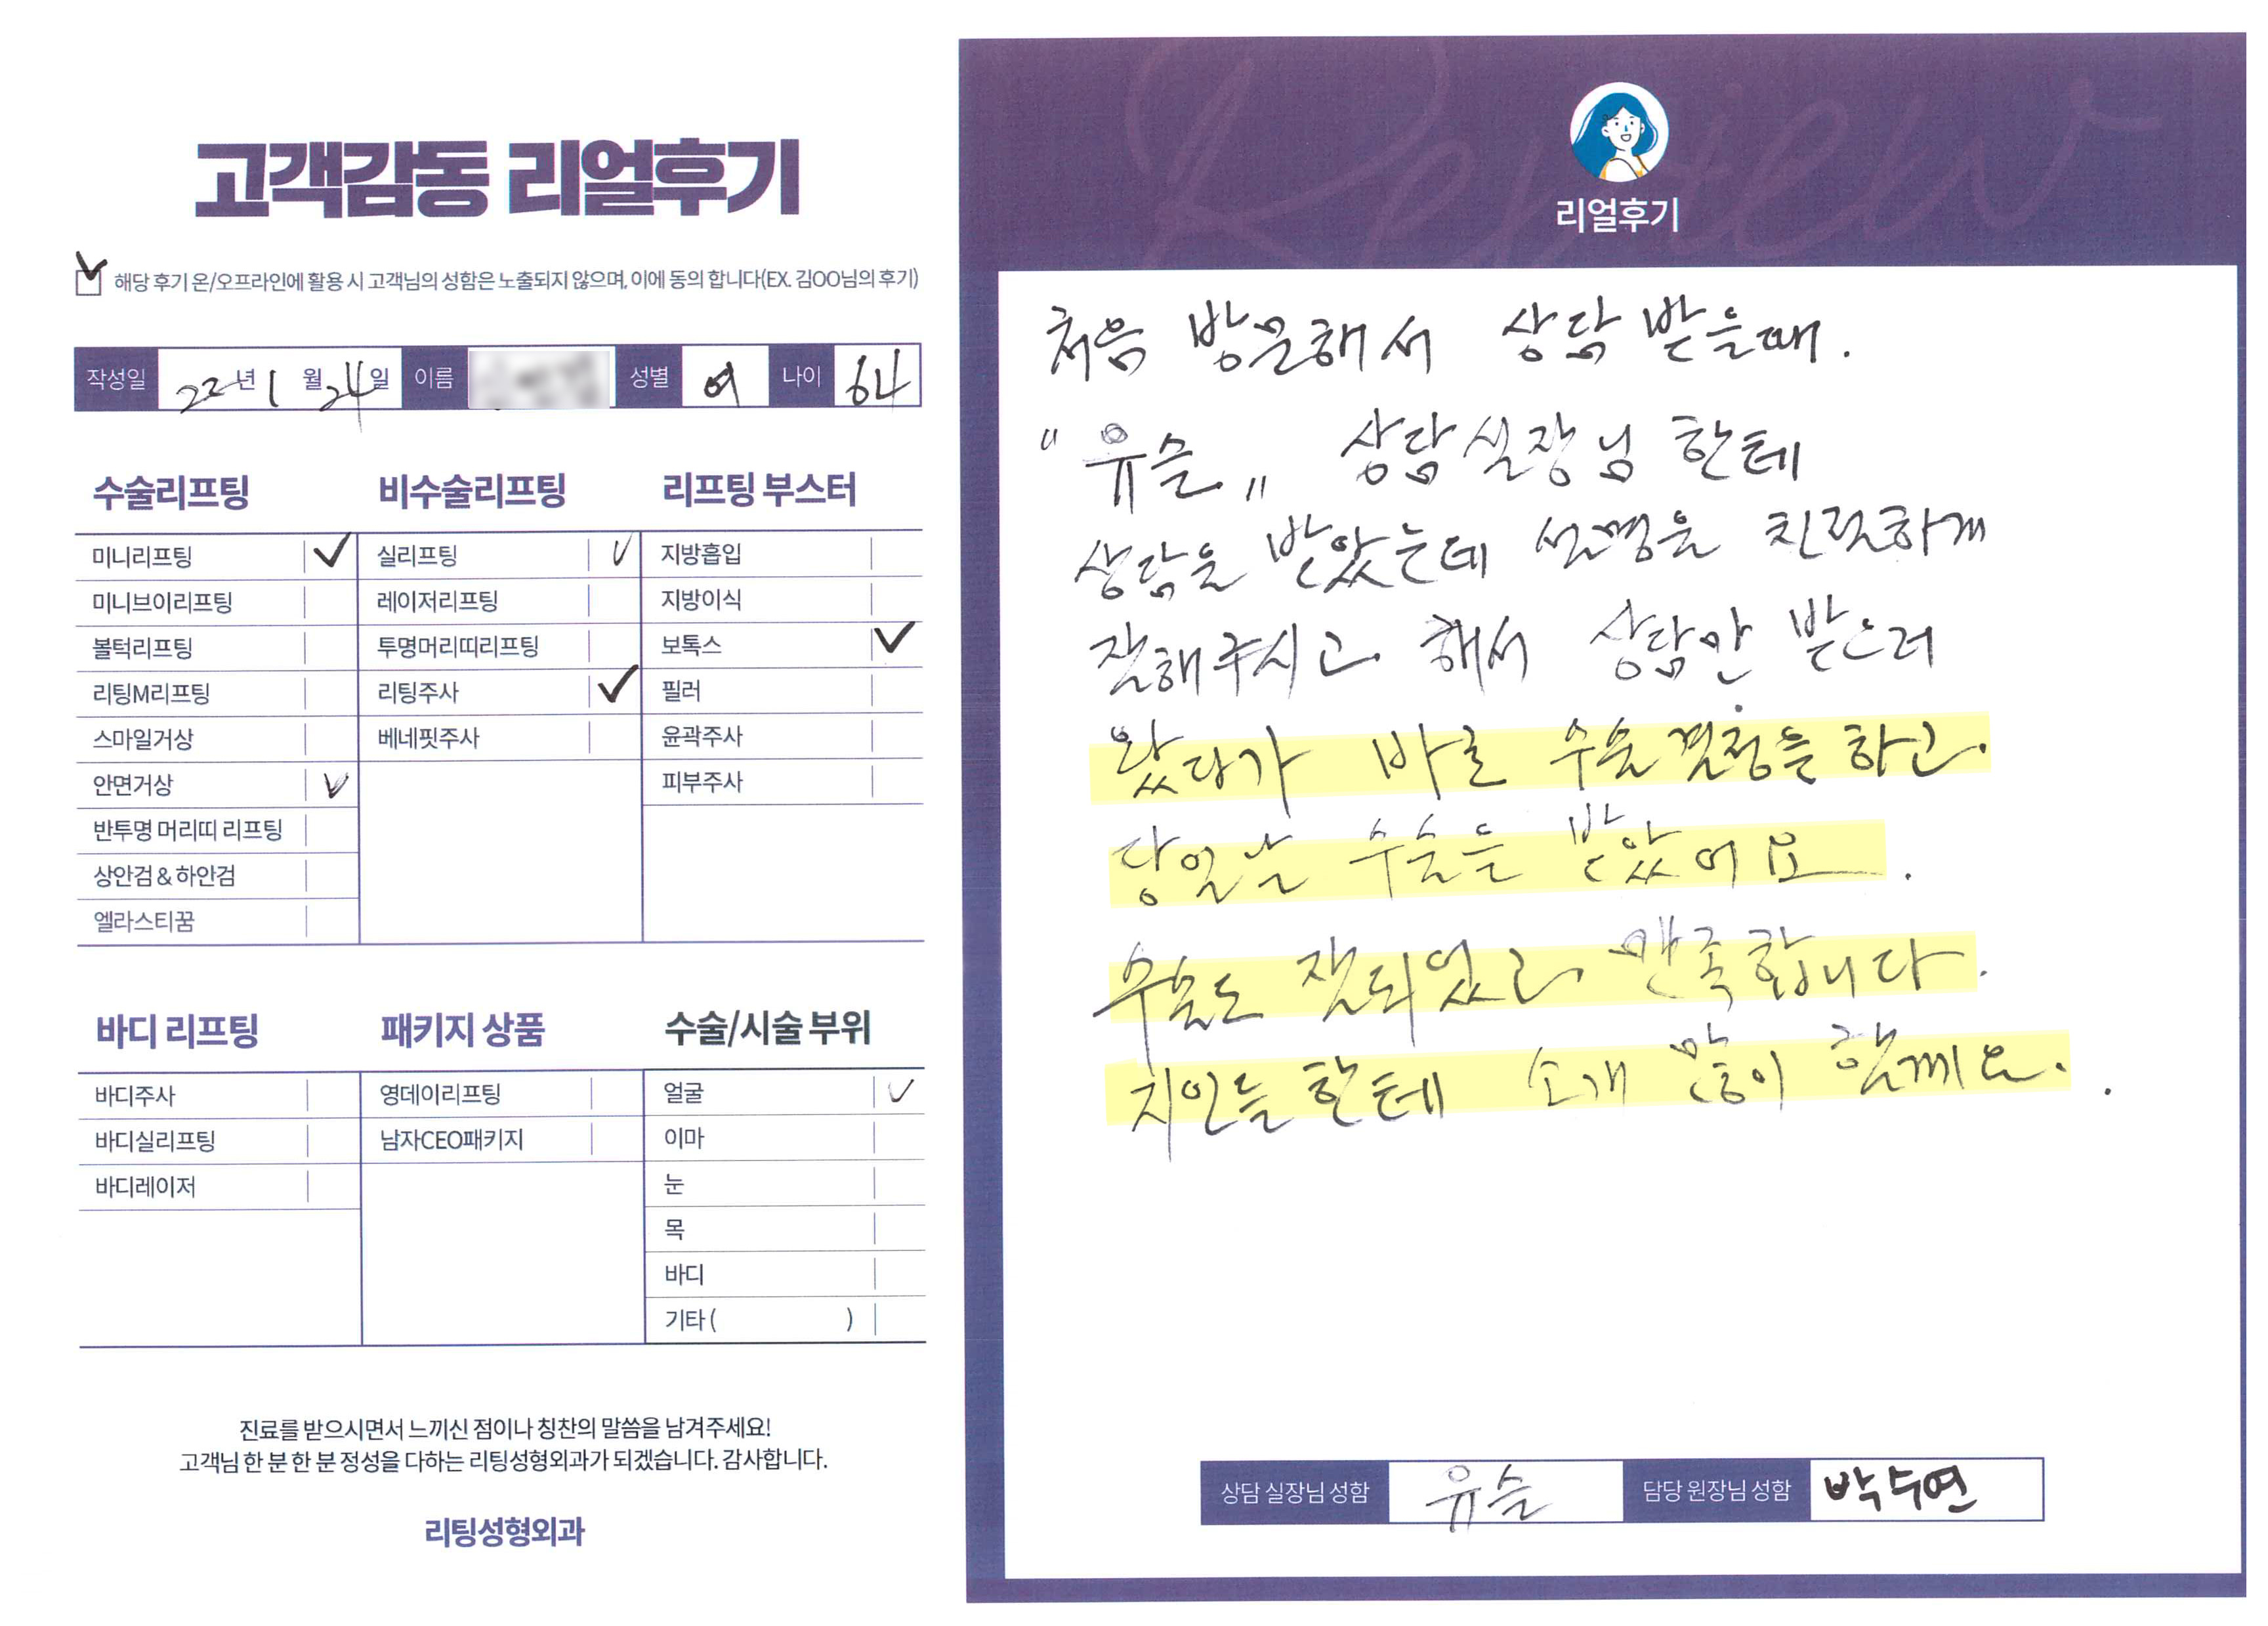 고객감동 리얼후기
해당 후기 온/오프라인에 활용 시 고객님의 성함은 노출되지 않으며, 이에 동의 합니다(EX. 김OO님의 후기)
작성일 22년 1월 24일 이름 성별 여 나이 64
수술리프팅
미니리프팅
미니브이리프팅
볼턱리프팅
리팅M리프팅
스마일거상
안면거상
반투명 머리띠 리프팅
상안검 & 하안검
엘라스티꿈
비수술리프팅
실리프팅
레이저리프팅
투명머리띠리프팅
리팅주사
베네핏주사
리프팅 부스터
지방흡입
지방이식
보톡스
필러
윤곽주사
피부주사
바디 리프팅
바디주사
바디실리프팅
바디레이저
패키지 상품
영데이리프팅
남자CEO패키지
수술/시술 부위
얼굴
이마
눈
목
바디
기타 ( )
진료를 받으시면서 느끼신 점이나 칭찬의 말씀을 남겨주세요!
고객님 한 분 한 분 정성을 다하는 리팅성형외과가 되겠습니다. 감사합니다.
리팅성형외과
Review
리얼후기
처음 방문해서 상담 받을때.
"유슬" 상담실장님 한테
상담을 받았는데 설명을 친절하게
잘해주시고 해서 상담만 받으러
왔다가 바로 수술결정을 하고.
당일날 수술을 받았어요.
수술도 잘되었고 만족합니다.
지인들한테 소개 많이 할께요..
상담 실장님 성함 유슬 담당 원장님 성함 박수연